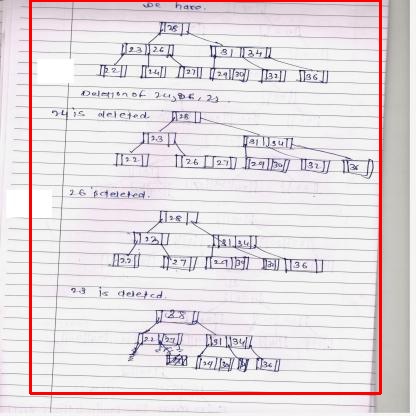 we have.
28
23 26 31 34
22 24 27 29 30 32 36
Deletion of 24, 26, 23.
24 is deleted 28
23 31 34
22 26 27 29 30 32 36
26 is deleted.
28
23 31 34
22 27 29 30 36
23 is deleted.
28
22 27 31 34
29 30 36